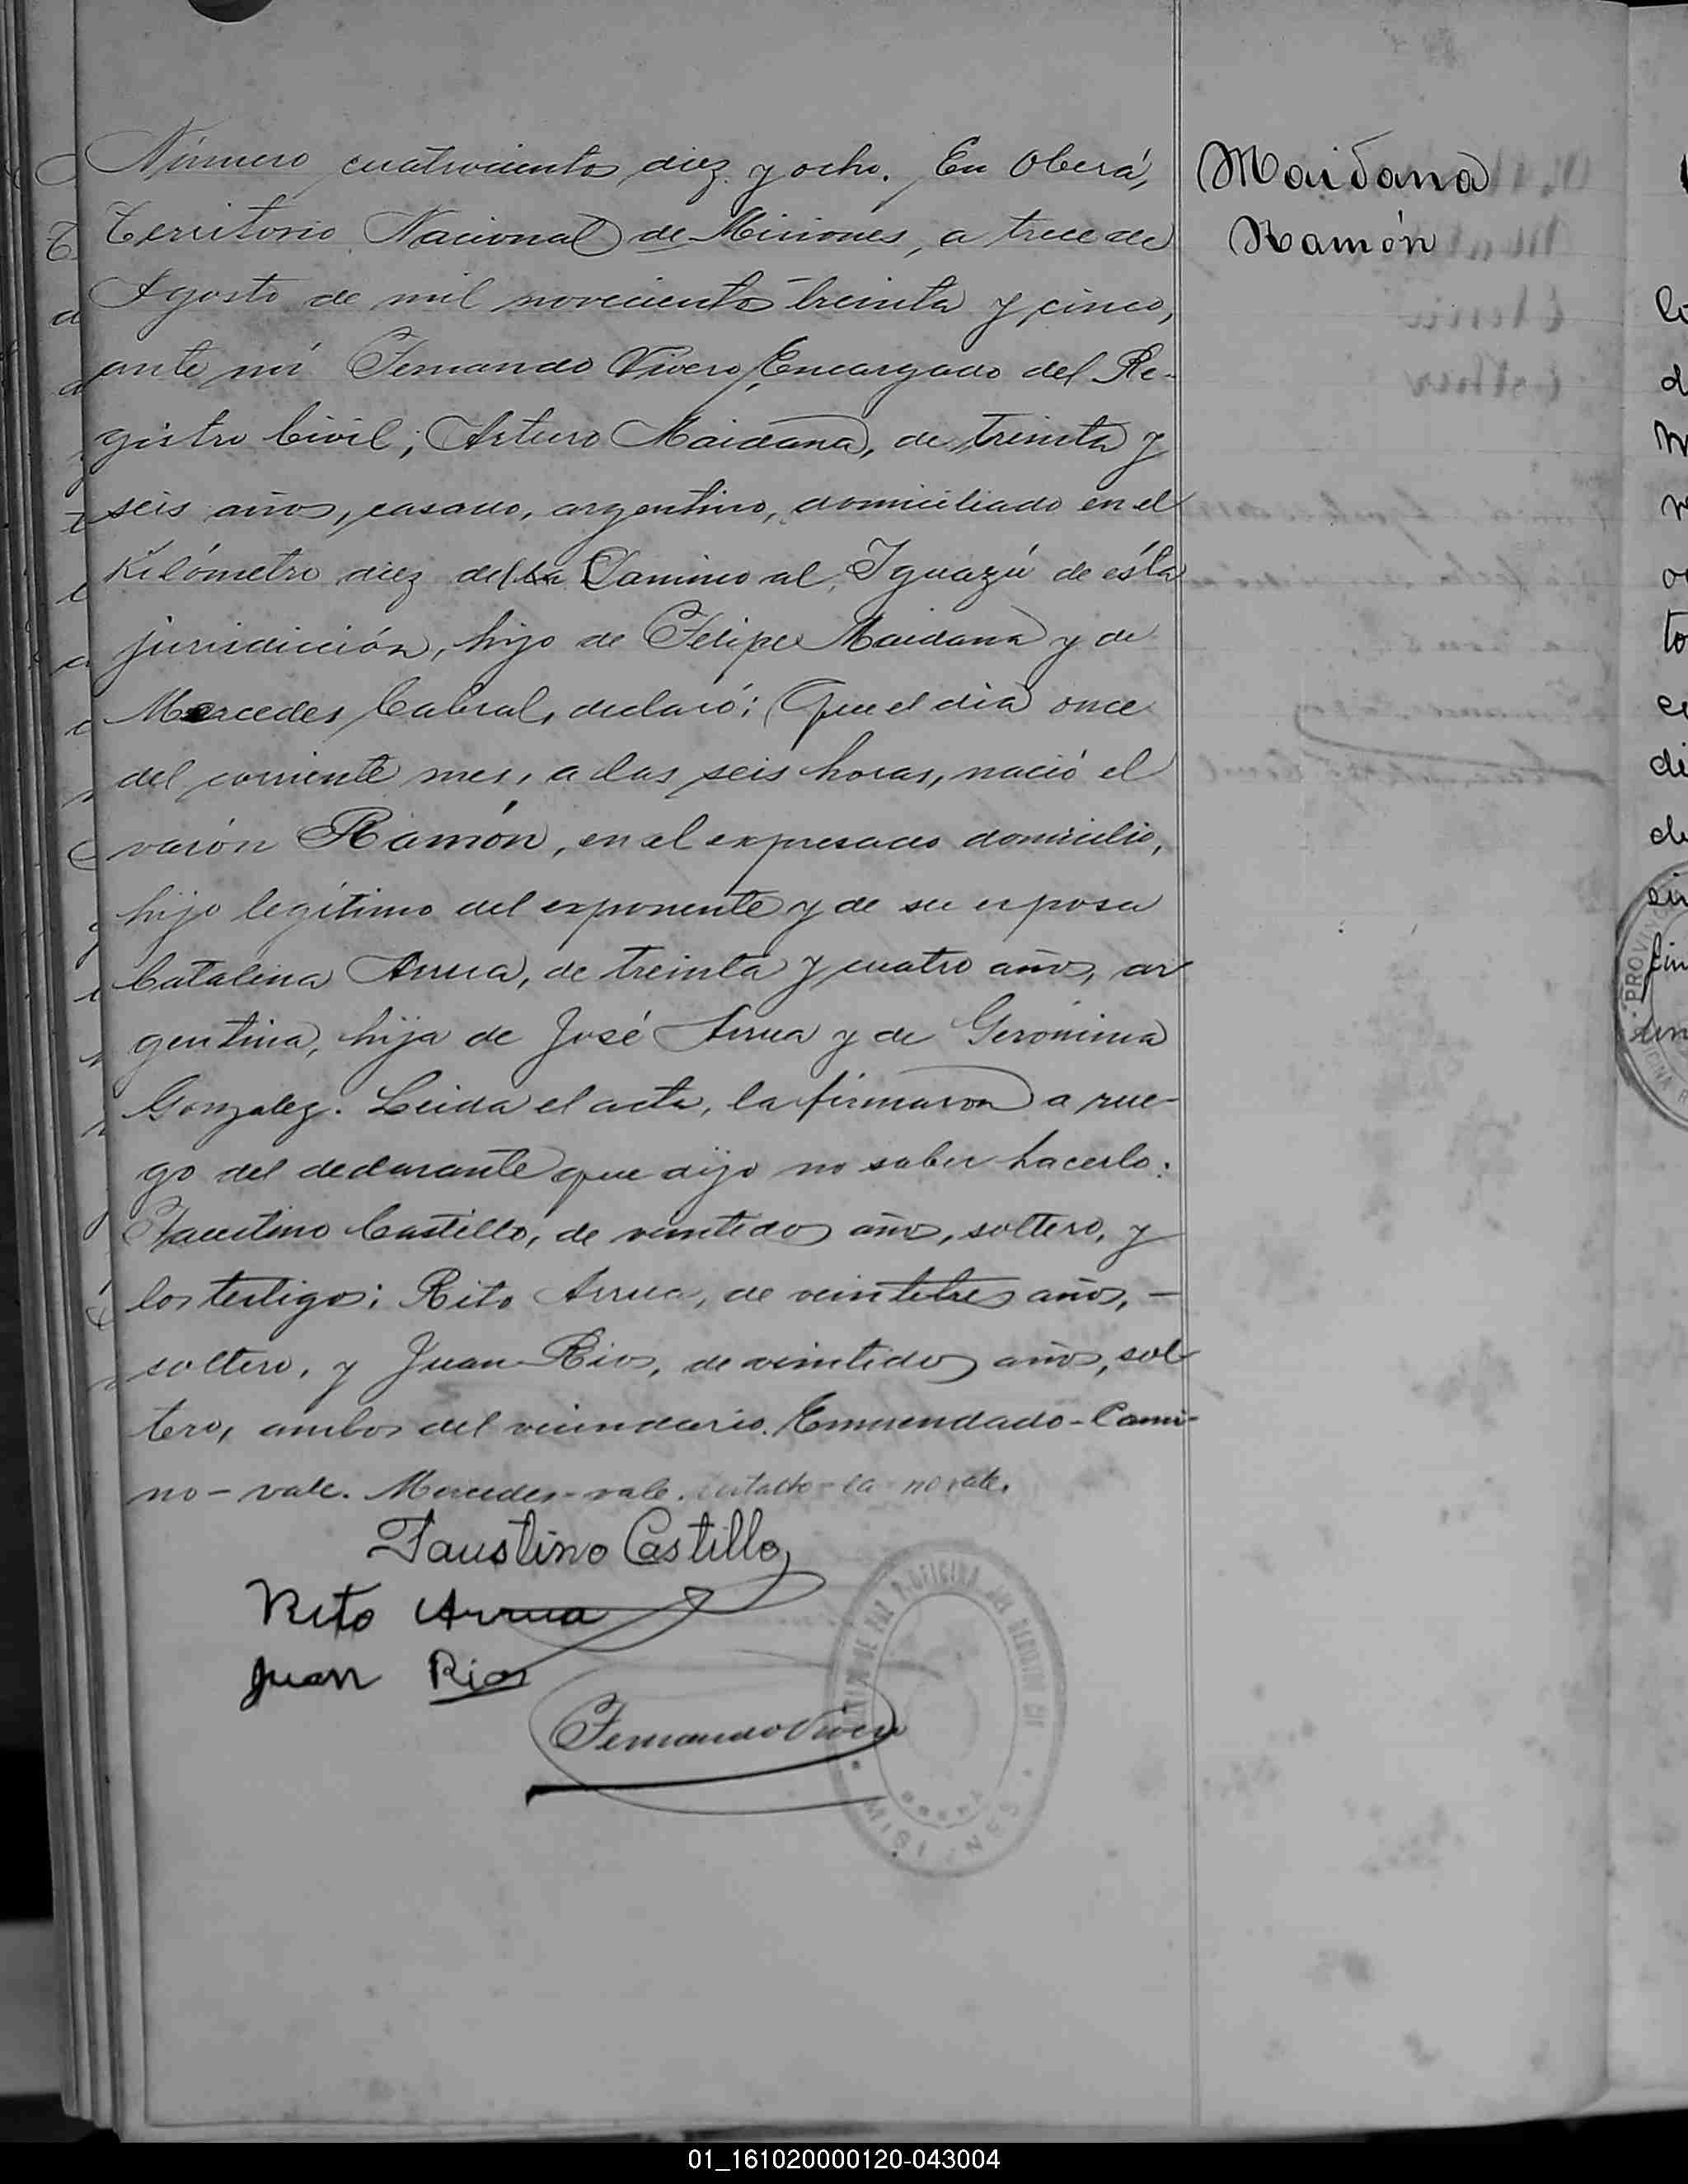 Número cuatrocientos diez y ocho. En Oberá,
Territorio Nacional de Misiones, a trece de
Agosto de mil novecientos treinta y cinco,
ante mí Fernando Vivero, Encargado del Re-
gistro Civil; Arturo Maidana, de treinta y
seis años, casado, argentino, domiciliado en el
Kilómetro diez del la Camino al Iguazú de ésta
jurisdicción, hijo de Felipe Maidana y de
Mercedes Cabral, declaró: Que el día once
del corriente mes, a las seis horas, nació el
varón Ramón, en el expresado domicilio,
hijo legítimo del exponente y de su esposa
Catalina Arrua, de treinta y cuatro años, ar
gentina, hija de José Arrua y de Gerónima
Gonzalez. Leida el acta, la firmaron a rue-
go del declarante que dijo no saber hacerlo:
Faustino Castillo, de veintedos años, soltero, y
los testigos: Rito Arrua, de veintetres años, -
soltero, y Juan Rios, de veintidos años, sol
tero, ambos del vecindario. Enmendado - Cami-
no - vale. Mercedes - vale. testado - la - no vale.
Faustino Castillo
Rito Arrua
Juan Rios
Fernando Vivero
MISIONES
Maidana
Ramón
PROVINCI
01_161020000120-043004